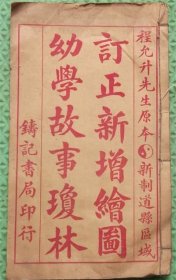 程允升先生原本☯新制道縣區域
訂正新增繪圖
幼學故事瓊林
鑄記書局印行